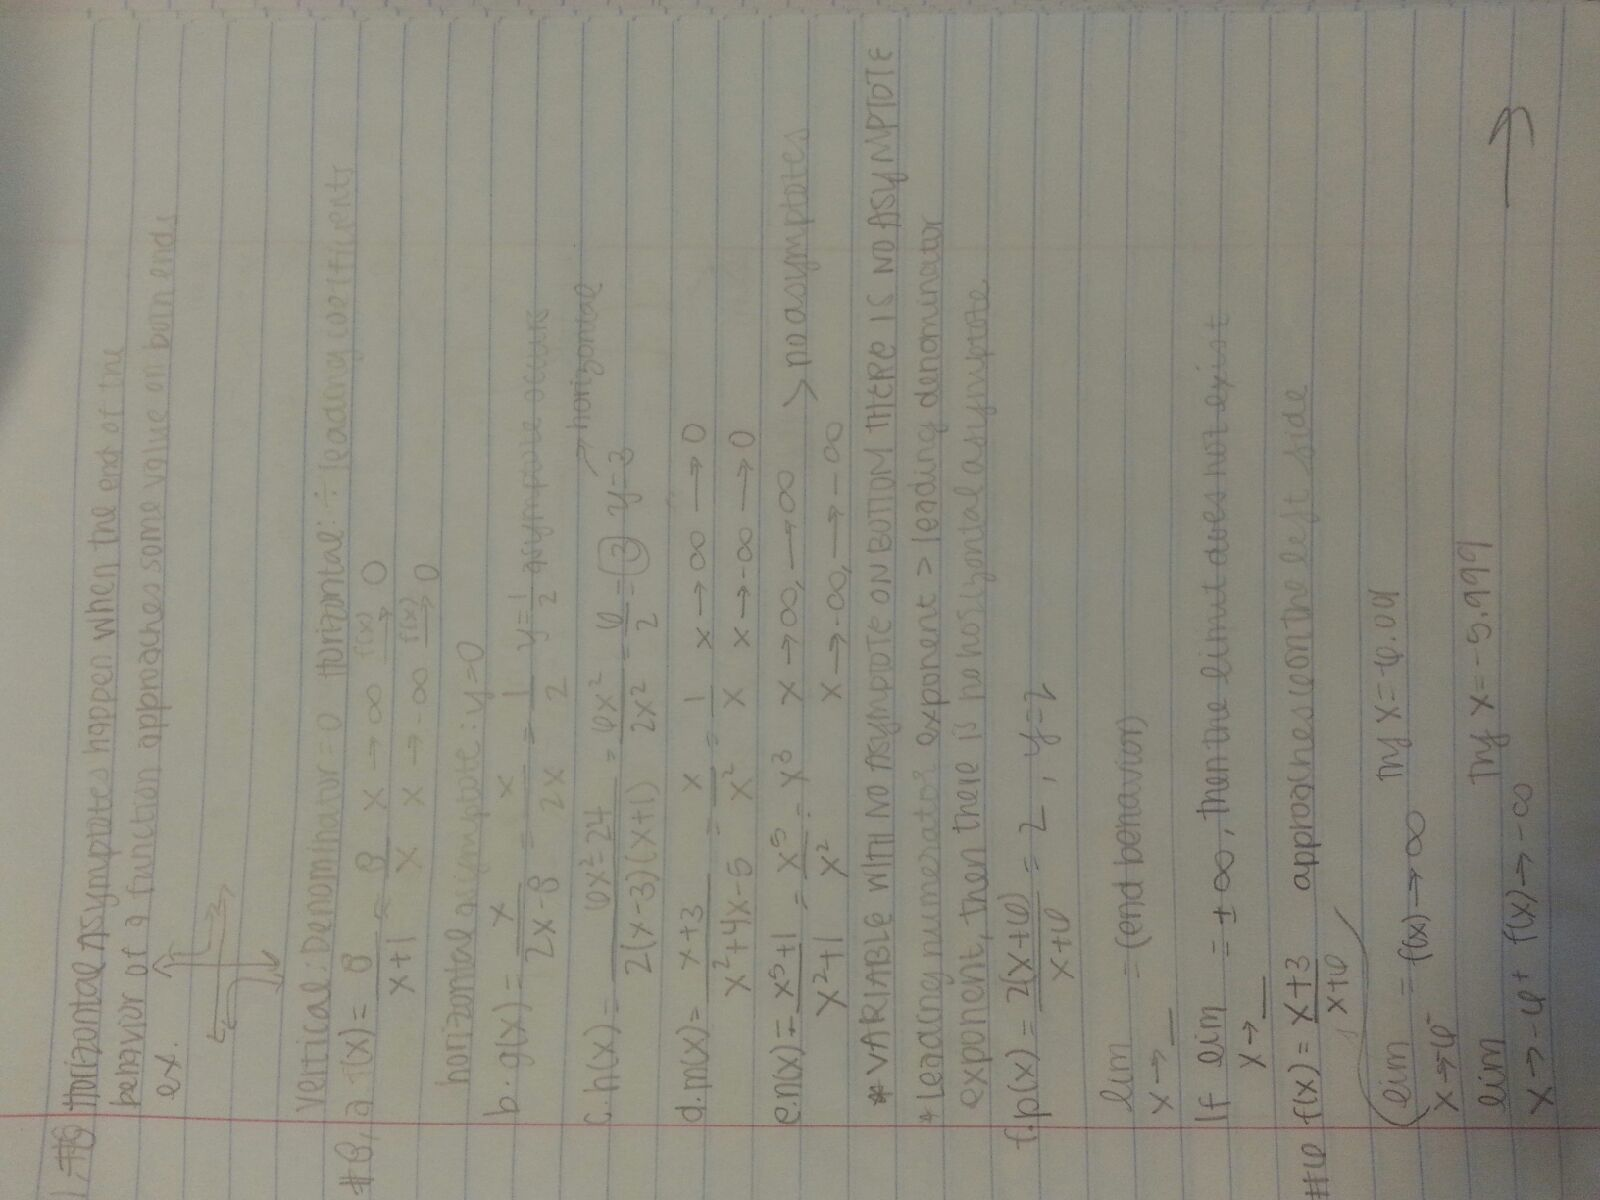 1. #8 Horizontal Asymptotes happen when the end of the
behavior of a function approaches some value on both ends
ex.
Vertical: Denominator = 0 Horizontal: ÷ leading coefficients
#8, a f(x) = 8/(x+1) ≈ 8/x x → ∞ f(x) → 0
x → -∞ f(x) → 0
horizontal asymptote: y=0
b. g(x) = x/(2x-8) = x/2x = 1/2 y = 1/2 asymptote occurs
c. h(x) = (6x²-24)/(2(x-3)(x+1)) = 6x²/2x² = 6/2 = 3 y=3 → horizontal
d. m(x) = (x+3)/(x²+4x-5) = x/x² = 1/x x → ∞ → 0
x → -∞ → 0
e. n(x) = (x⁵+1)/(x²+1) = x⁵/x² = x³ x → ∞, → ∞
x → -∞, → -∞ > no asymptotes
* VARIABLE WITH NO ASYMPTOTE ON BOTTOM THERE IS NO ASYMPTOTE
* Leading numerator exponent > leading denominator
exponent, then there is no horizontal asymptote
f. p(x) = 2(x+6)/(x+6) = 2, y=2
lim x → __ = (end behavior)
If lim x → __ = ± ∞, then the limit does not exist
#6 f(x) = (x+3)/(x+6) approaches on the left side
lim x → 6⁻ = f(x) → ∞ Try x = -6.01
lim x → -6⁺ f(x) → -∞ Try x = -5.999